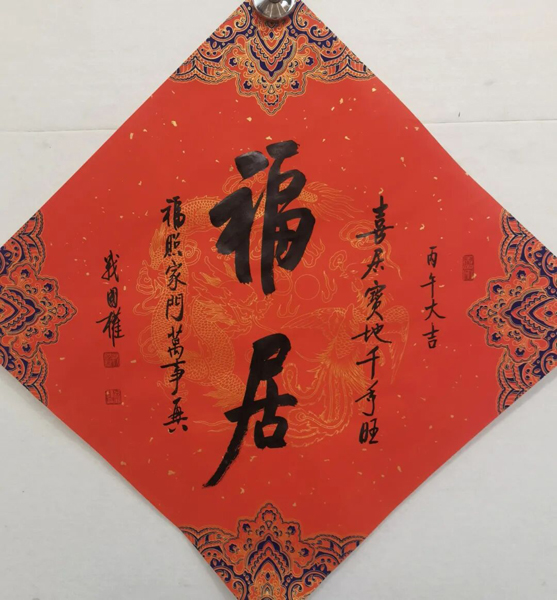 丙午大吉
喜居寶地千年旺
福居
福照家門萬事興
国權